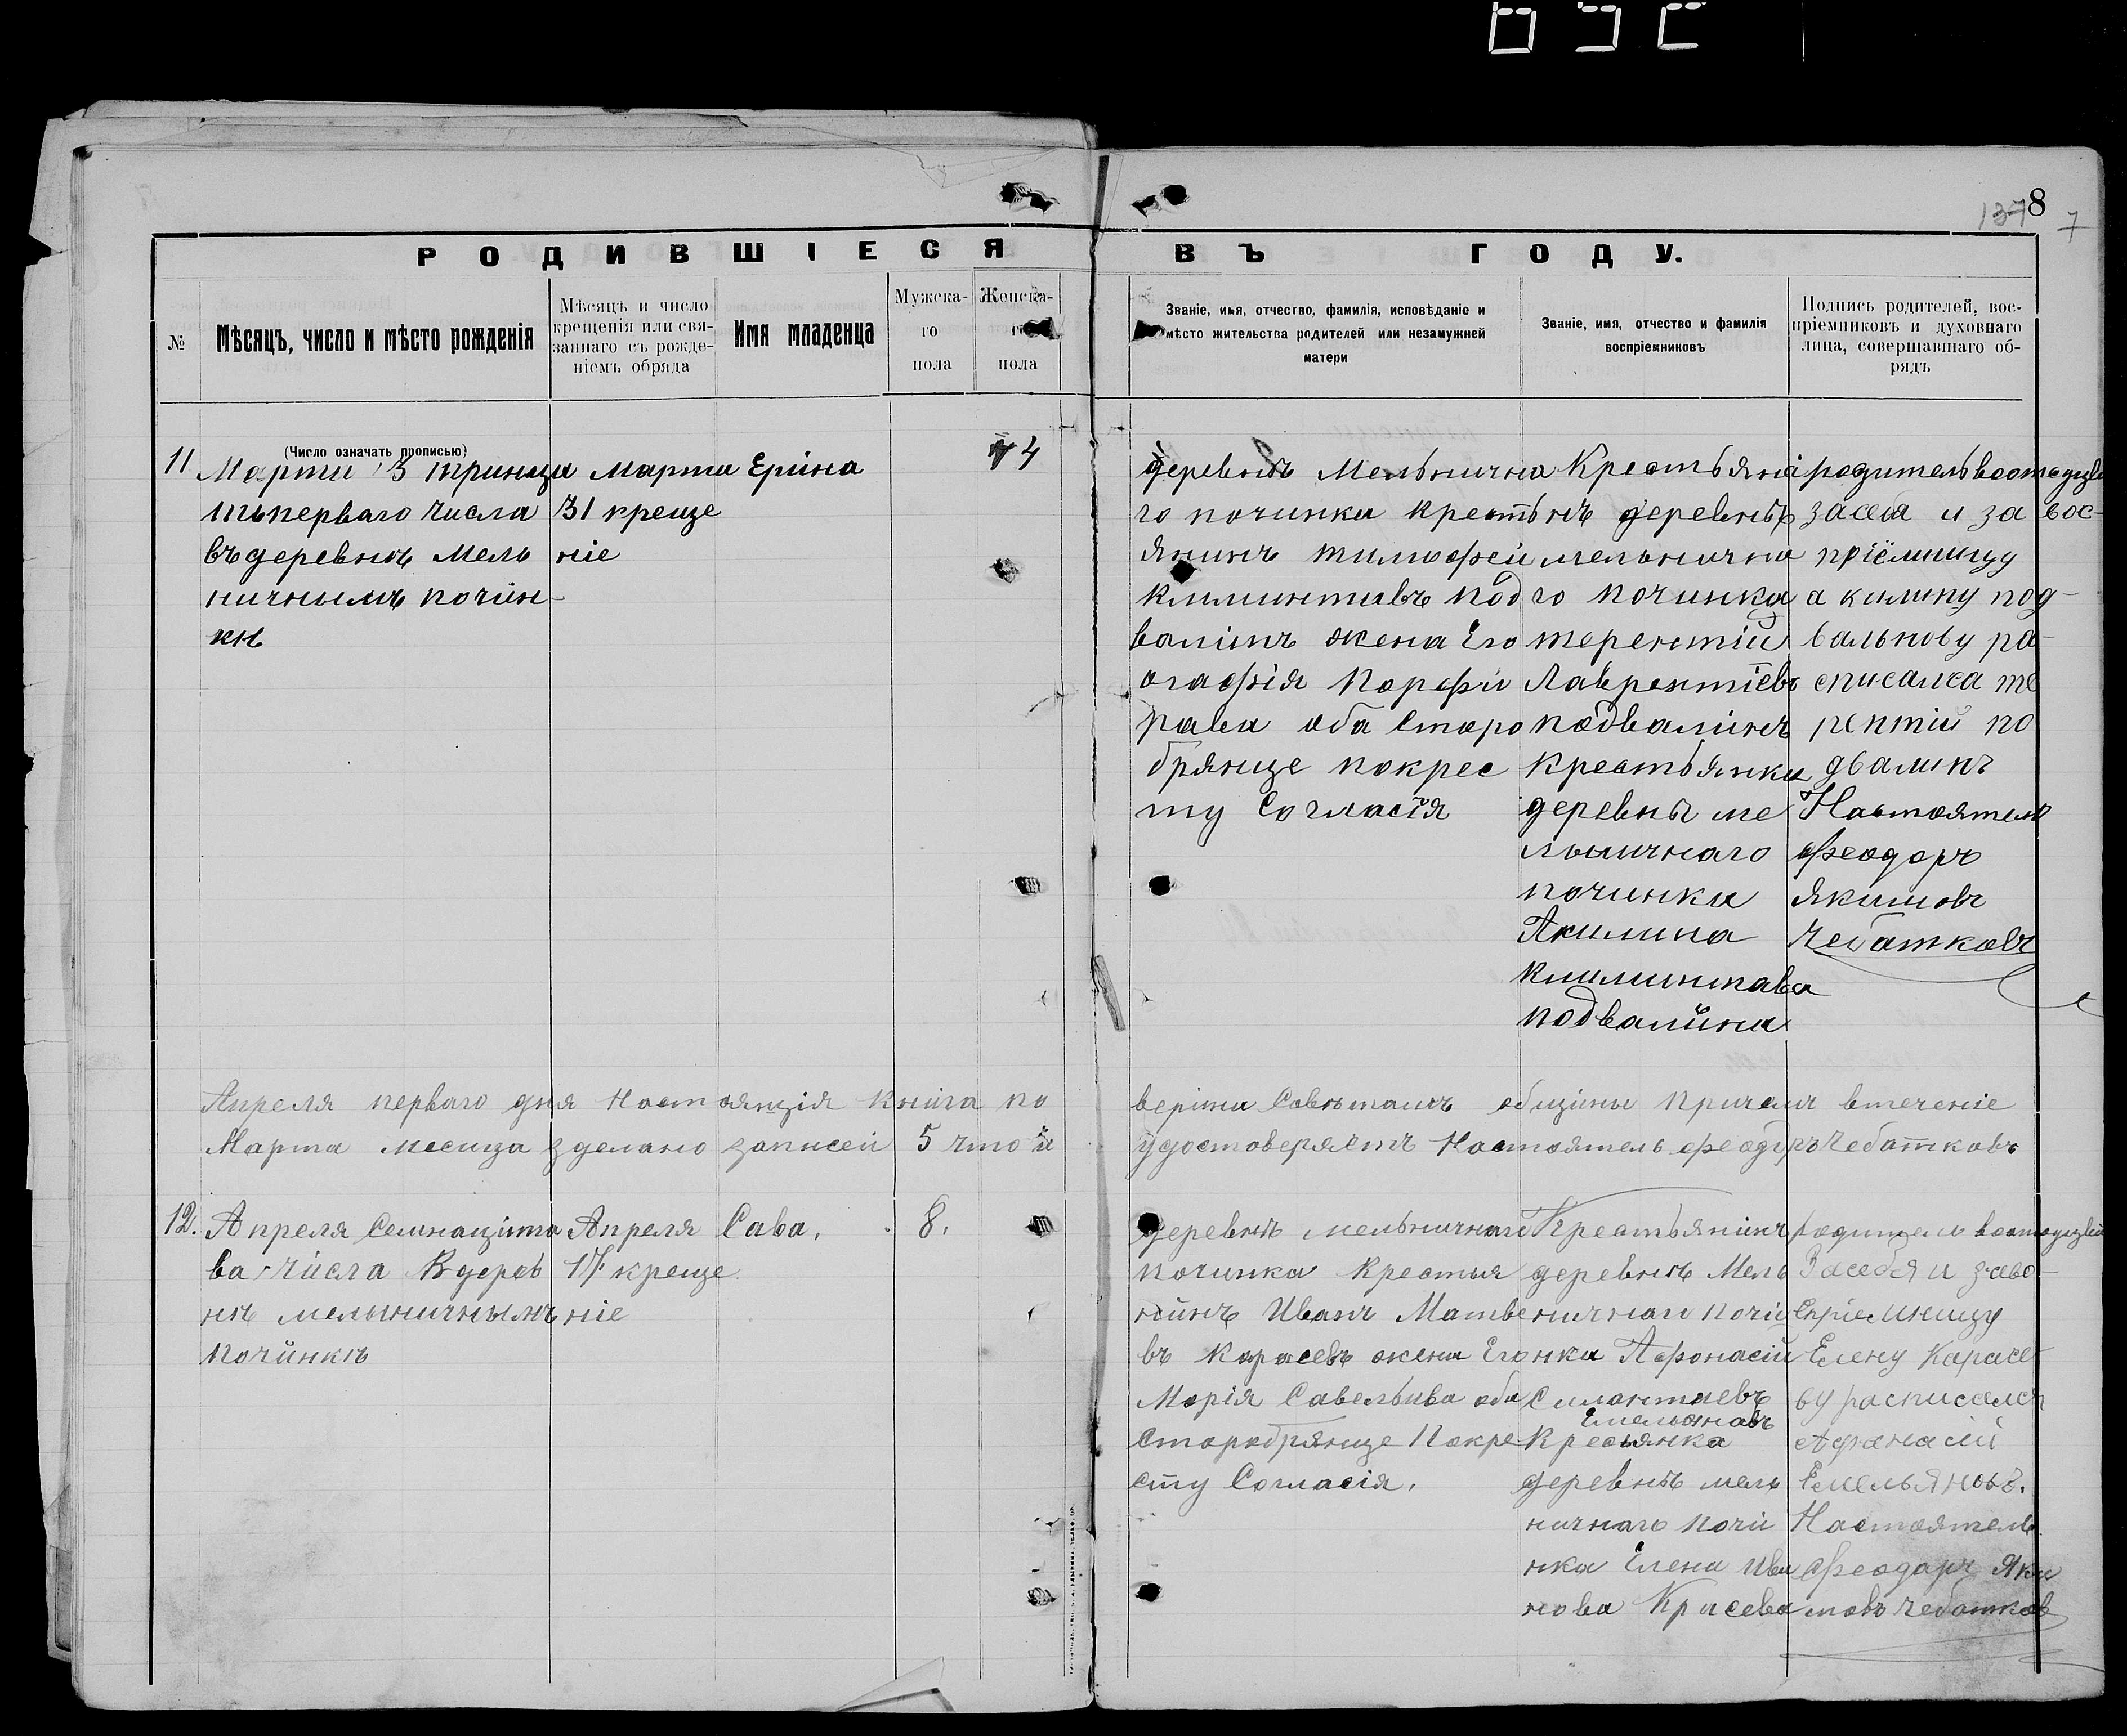 1378 7
РОДИВШІЕСЯ ВЪ ГОДУ.
№
Мѣсяцъ, число и мѣсто рожденія
Мѣсяцъ и число
крещенія или свя-
заннаго съ рожде-
ніемъ обряда
Имя младенца
Мужска-
го
пола
Женска-
го
пола
Званіе, имя, отчество, фамилія, исповѣданіе и
мѣсто жительства родителей или незамужней
матери
Званіе, имя, отчество и фамилія
воспріемниковъ
Подпись родителей, вос-
пріемниковъ и духовнаго
лица, совершавшаго об-
рядъ
(Число означать прописью)
11
Марти 3 тринаца
тьперваго числа
въдеревнѣ Мель
ничнымъ почін-
кѣ
Марта
31 креще
ніе
Ерина
4
деревнѣ Мельнична
го починка крестъ
янинъ тимофей
климинтивъ под
валінъ жена Его
агафія Порфи
рава оба Старо
брянще покрес
ту Согласія
Крестьяні
нъ деревнѣ
мельнична
го починка
терентій
Лаврентіевъ
подвалінъ
крестьянка
деревнѣ ме
льничнаго
починка
Акилина
климинтава
подвалина
родитель
засебя и за вос-
пріёмницу
а килину под-
вальнову ра-
списалса те
рентій по
двалинъ
Настоятель
феодоръ
Якимовъ
Чебатковъ
Апреля перваго дня Настоящія книга по
верина Савѣтамъ общины Причемъ втеченіе
Марта месица зделано записей 5 что и
удостоверяетъ Настоятель феодоръ Чебатковъ
12.
Апреля Семнаціта
ва числа Вдерев
нѣ мельничнымъ
Починкѣ
Апреля
17 креще
ніе
Сава.
8.
деревнѣ мельничнаи
починка Крестья
нинъ Иванъ Матве
въ Карасевъ жена Его
Марія Савельива оба
Старобрянще Покре
сту Согласія.
Крестьянінъ
деревнѣ Мель
ничнаго Почи
нка Афонасій
Силантиевъ
Емельяновъ
Кресьянка
деревнѣ мель
ничнаго Почи
нка Елена Ива
нова Красева
родитель
Засебя и заво-
спріемницу
Елену Карасе
ву расписался
Афанасій
Емельяновъ.
Настоятель
Феодаръ Яки
мовъ Чебатков